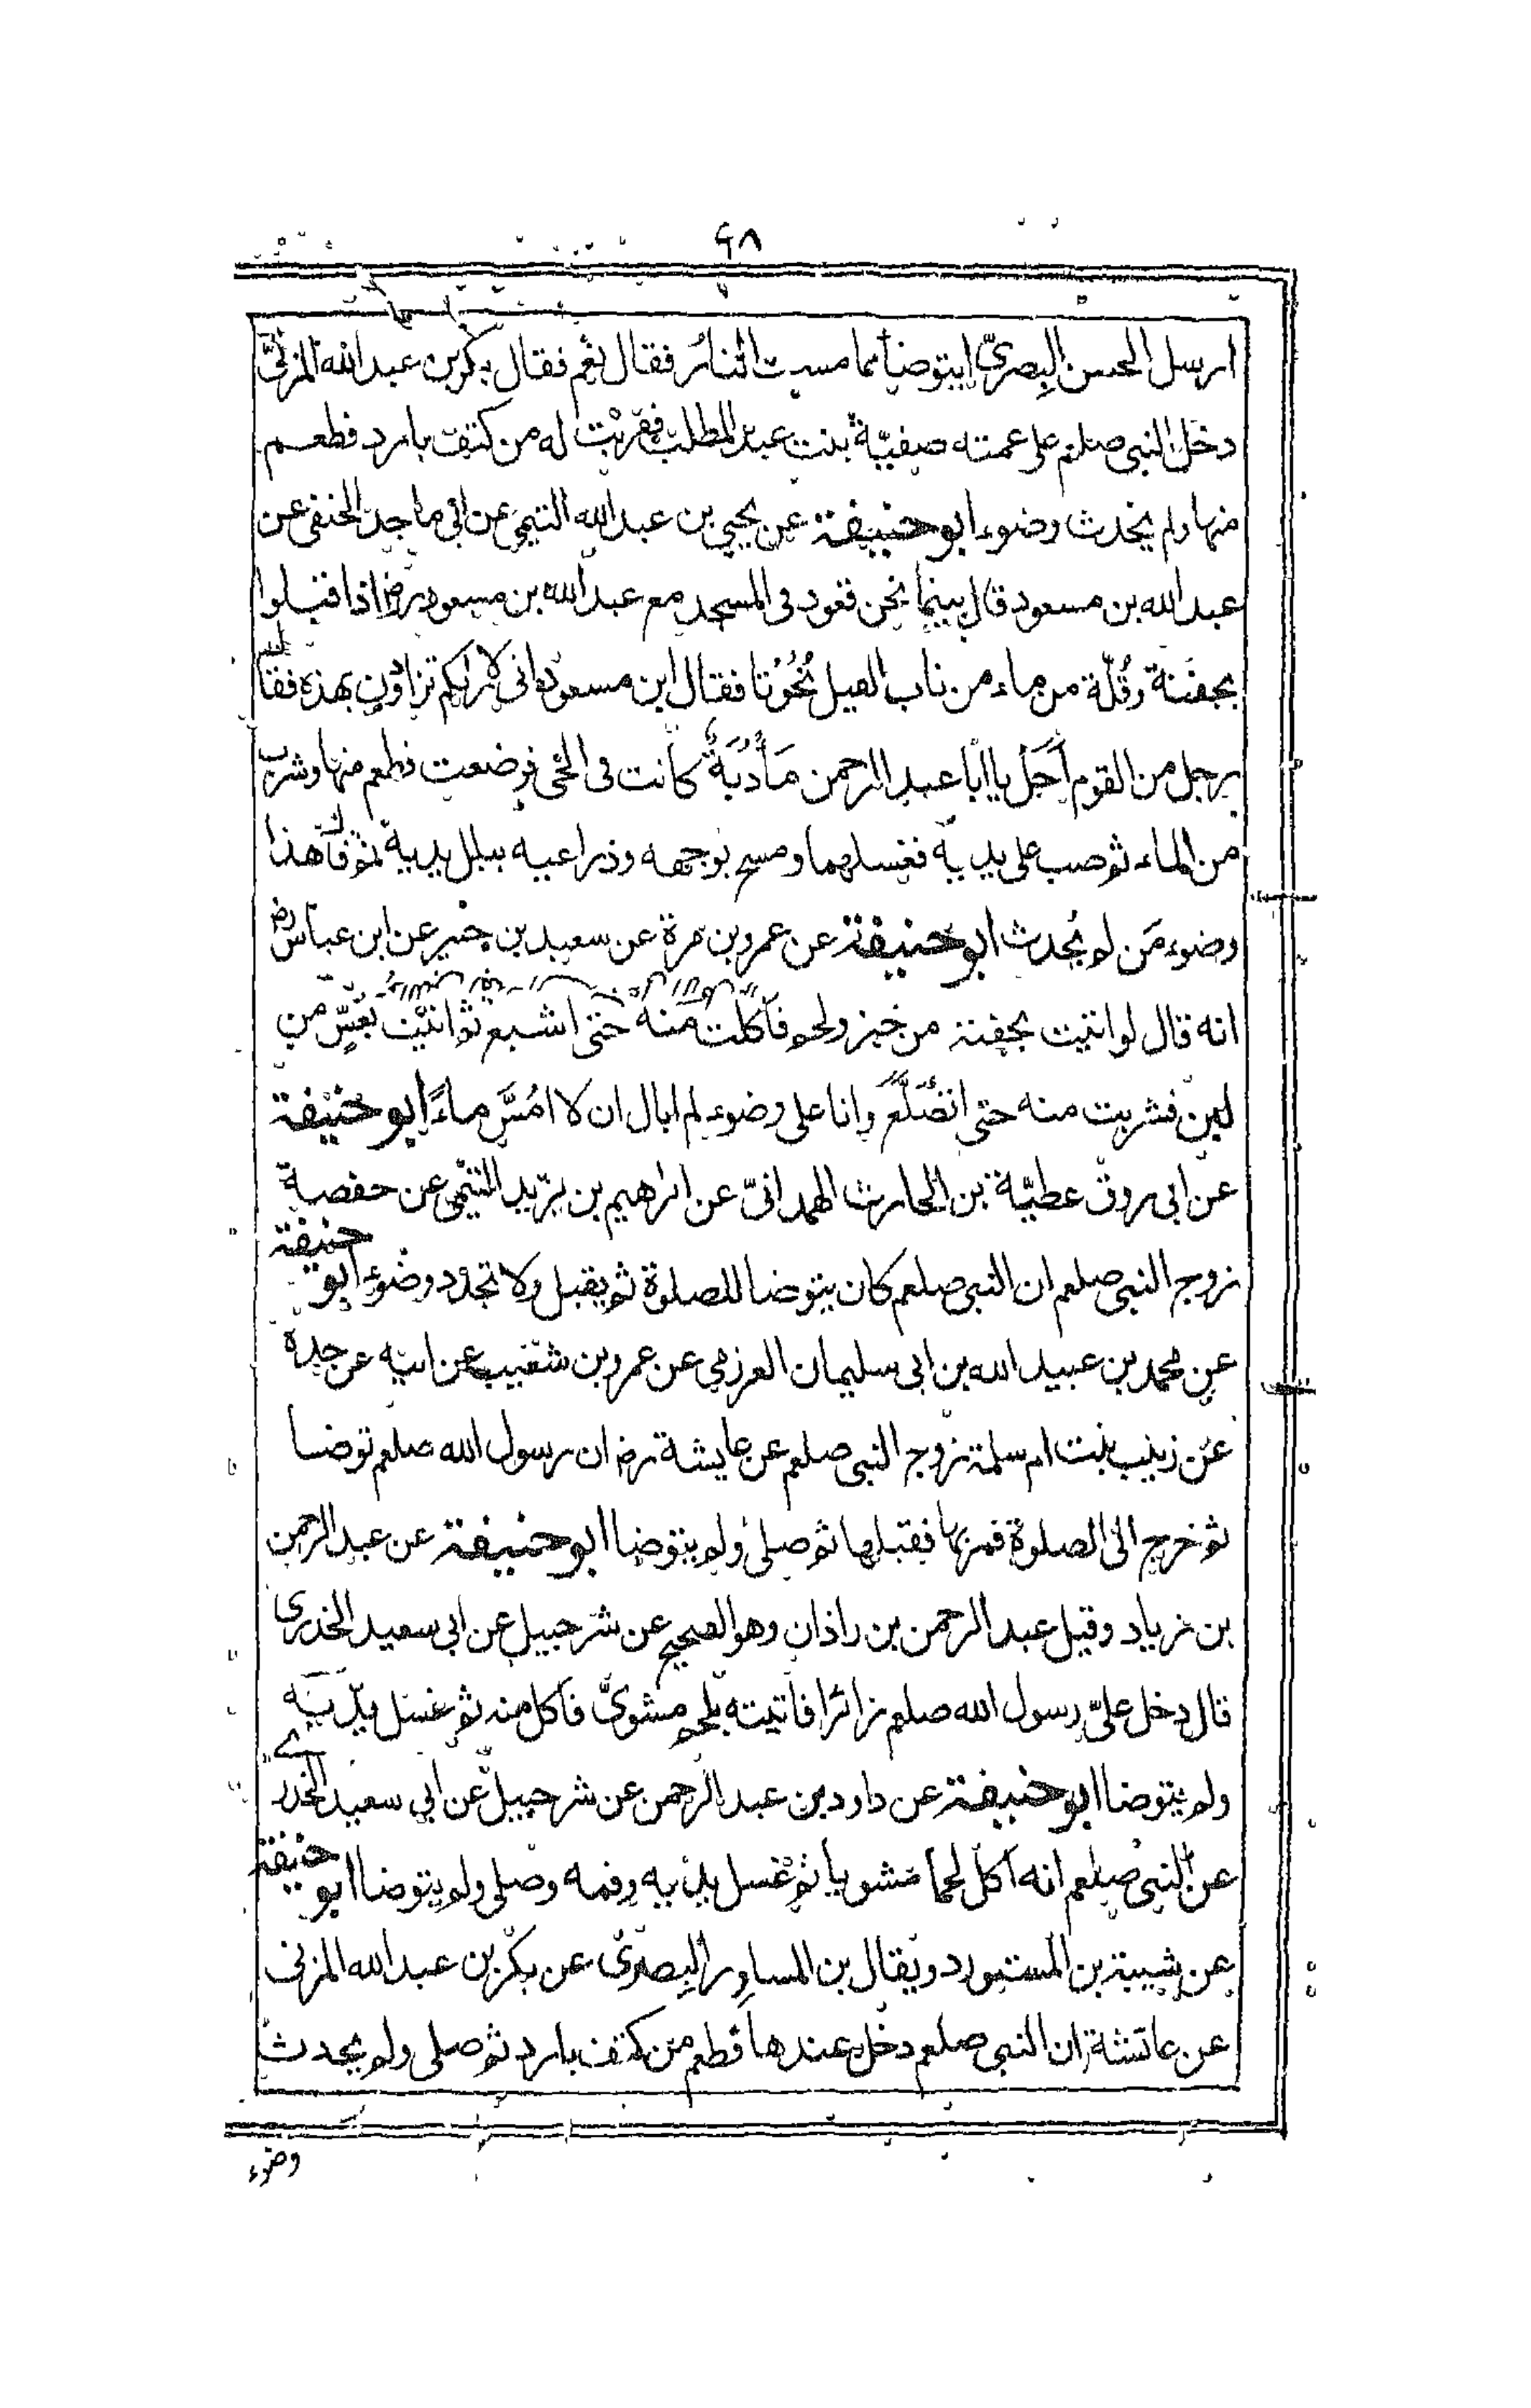 ٤٨
ارسل الحسن البصريّ ايتوضأ مما مست النار فقال نعم فقال بكر بن عبد الله المزنيّ
دخل النبي صلعم على عمته صفيّة بنت عبد المطلب فقربت له من كتف بارد فطعم
منها ولم يحدث وضوء ابو حنيفة عن يحيى بن عبد الله التيمي عن ابي ماجد الحنفي عن
عبد الله بن مسعود قال بينما نحن قعود في المسجد مع عبد الله بن مسعود رض اذا قبلوا
بجفنة وقُلّة من ماء من باب الفيل نحونا فقال ابن مسعود اني لاراكم تزادون بهذه فقال
رجل من القوم اجل يا ابا عبد الرحمن مأدُبَةٌ كانت في الحي فوضعت فطعم منها وشرب
من الماء ثم صب على يديه فغسلهما ومسح بوجهه وذراعيه ببلل يديه ثم قال هذا
وضوء من لم يُحدث ابو حنيفة عن عمرو بن مرة عن سعيد بن جبير عن ابن عباس رض
انه قال لو اتيت بجفنة من خبز ولحم فاكلت منه حتى اشبع ثم اتيت بعُسٍّ من
لبن فشربت منه حتى اتضلّع وانا على وضوء لم ابال ان لا امسَّ ماءً ابو حنيفة
عن ابي روق عطيّة بن الحارث الهمدانيّ عن ابراهيم بن يزيد التيمي عن حفصة
زوج النبي صلعم ان النبي صلعم كان يتوضا للصلوة ثم يقبل ولا تجدد وضوء ابو حنيفة
عن محمد بن عبيد الله بن ابي سليمان العرزمي عن عمرو بن شعيب عن ابيه عن جده
عن زينب بنت ام سلمة زوج النبي صلعم عن عايشة رض ان رسول الله صلعم توضا
ثم خرج الى الصلوة فمر بها فقبلها ثم صلى ولم يتوضا ابو حنيفة عن عبد الرحمن
بن زياد وقيل عبد الرحمن بن زاذان وهو الصحيح عن شرحبيل عن ابي سعيد الخدري
قال دخل عليّ رسول الله صلعم زائرا فاتيته بلحم مشويّ فاكل منه ثم غسل يديه
ولم يتوضا ابو حنيفة عن داود بن عبد الرحمن عن شرحبيل عن ابي سعيد الخدري
عن النبي صلعم انه اكل لحما مشويا ثم غسل يديه وفمه وصلى ولم يتوضا ابو حنيفة
عن شيبة بن المستورد ويقال بن المساور البصري عن بكر بن عبد الله المزني
عن عائشة ان النبي صلعم دخل عندها فطعم من كتف بارد ثم صلى ولم يحدث
وضوء